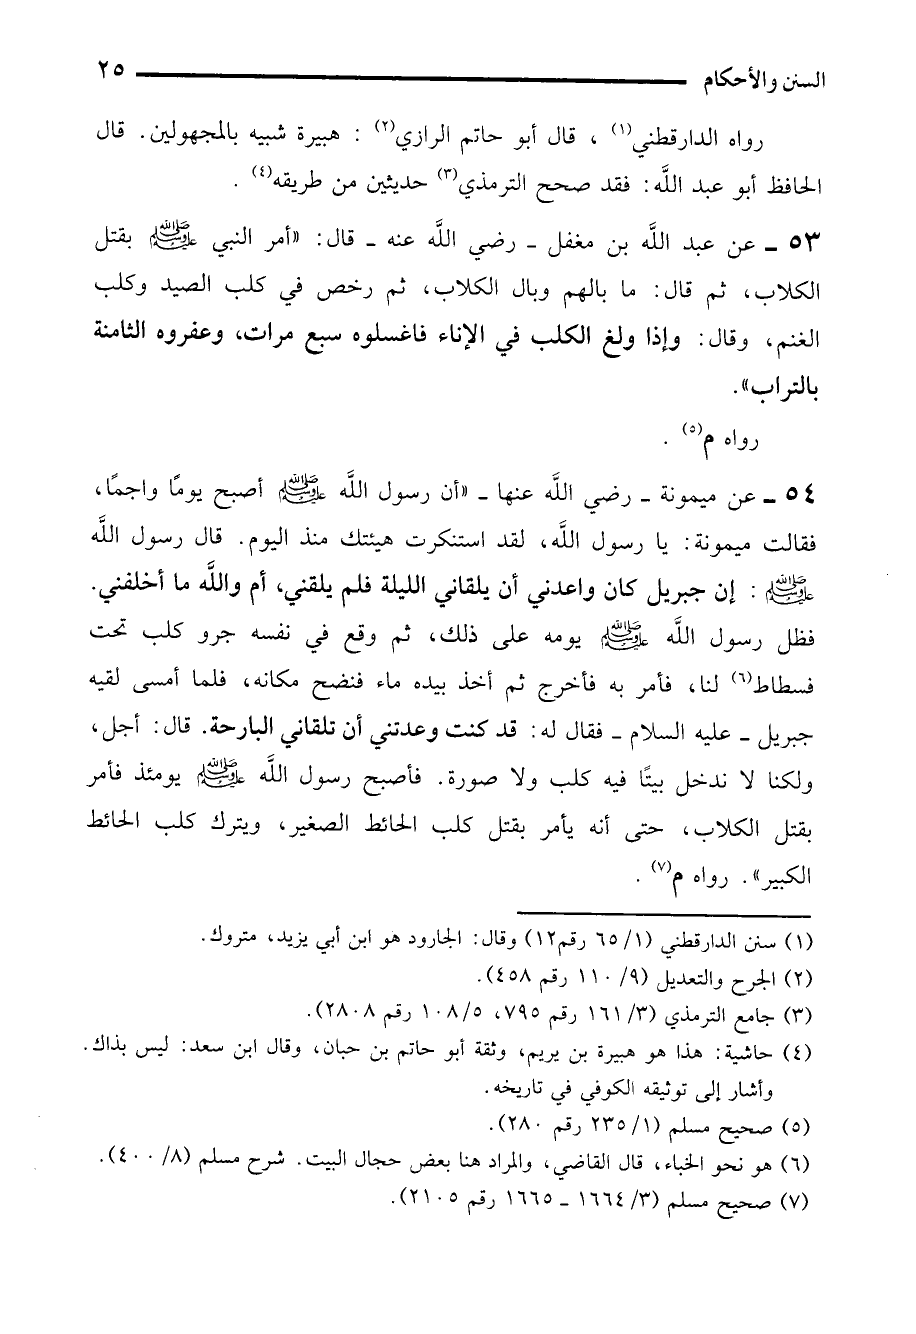 السنن والأحكام ٢٥
رواه الدارقطني(١) ، قال أبو حاتم الرازي(٢) : هبيرة شبيه بالمجهولين. قال
الحافظ أبو عبد اللَّه: فقد صحح الترمذي(٣) حديثين من طريقه(٤) .
٥٣ ـ عن عبد اللَّه بن مغفل ـ رضي اللَّه عنه ـ قال: «أمر النبي ﷺ بقتل
الكلاب، ثم قال: ما بالهم وبال الكلاب، ثم رخص في كلب الصيد وكلب
الغنم، وقال: وإذا ولغ الكلب في الإناء فاغسلوه سبع مرات، وعفروه الثامنة
بالتراب».
رواه م(٥) .
٥٤ ـ عن ميمونة ـ رضي اللَّه عنها ـ «أن رسول اللَّه ﷺ أصبح يومًا واجمًا،
فقالت ميمونة: يا رسول اللَّه، لقد استنكرت هيئتك منذ اليوم. قال رسول اللَّه
ﷺ : إن جبريل كان واعدني أن يلقاني الليلة فلم يلقني، أم واللَّه ما أخلفني.
فظل رسول اللَّه ﷺ يومه على ذلك، ثم وقع في نفسه جرو كلب تحت
فسطاط(٦) لنا، فأمر به فأخرج ثم أخذ بيده ماء فنضح مكانه، فلما أمسى لقيه
جبريل ـ عليه السلام ـ فقال له: قد كنت وعدتني أن تلقاني البارحة. قال: أجل،
ولكنا لا ندخل بيتًا فيه كلب ولا صورة. فأصبح رسول اللَّه ﷺ يومئذ فأمر
بقتل الكلاب، حتى أنه يأمر بقتل كلب الحائط الصغير، ويترك كلب الحائط
الكبير». رواه م(٧) .
(١) سنن الدارقطني (١/ ٦٥ رقم١٢) وقال: الجارود هو ابن أبي يزيد، متروك.
(٢) الجرح والتعديل (٩/ ١١٠ رقم ٤٥٨).
(٣) جامع الترمذي (٣/ ١٦١ رقم ٧٩٥، ٥/ ١٠٨ رقم ٢٨٠٨).
(٤) حاشية: هذا هو هبيرة بن يريم، وثقة أبو حاتم بن حبان، وقال ابن سعد: ليس بذاك.
وأشار إلى توثيقه الكوفي في تاريخه.
(٥) صحيح مسلم (١/ ٢٣٥ رقم ٢٨٠).
(٦) هو نحو الخباء، قال القاضي، والمراد هنا بعض حجال البيت. شرح مسلم (٨/ ٤٠٠).
(٧) صحيح مسلم (٣/ ١٦٦٤ ـ ١٦٦٥ رقم ٢١٠٥).